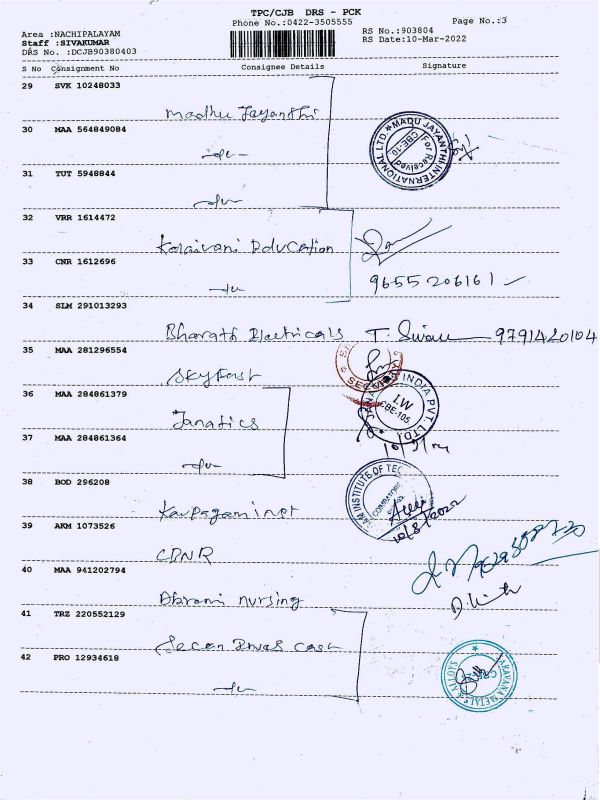 TPC/CJB DRS - PCK
Phone No.:0422-3505555
Page No.:3
Area :NACHIPALAYAM
RS No.:903804
Staff :SIVAKUMAR
RS Date:10-Mar-2022
DRS No. :DCJB90380403
S No Consignment No Consignee Details Signature
29 SVK 10248033
Madhu Jayanthi
30 MAA 564849084
-do-
MADU JAYANTHI INTERNATIONAL LTD
For Received
CBE-10
31 TUT 5948844
-do-
32 VRR 1614472
Kalaivani Education
33 CNR 1612696
-do-
9655206161
34 SLM 291013293
Bharath Electricals T. Sivan 9791420104
35 MAA 281296554
Skyfast
36 MAA 284861379
Janatics
INDIA PVT. LTD.
I.W
CBE-105
37 MAA 284861364
-do-
38 BOD 296208
Karpagam inst
INSTITUTE OF TEC
COIMBATORE
10/3/2022
39 AKM 1073526
CDNR
40 MAA 941202794
Abirami nursing
41 TRZ 220552129
42 PRO 12934618
-do-
SARAVANA METALS & ALLOYS